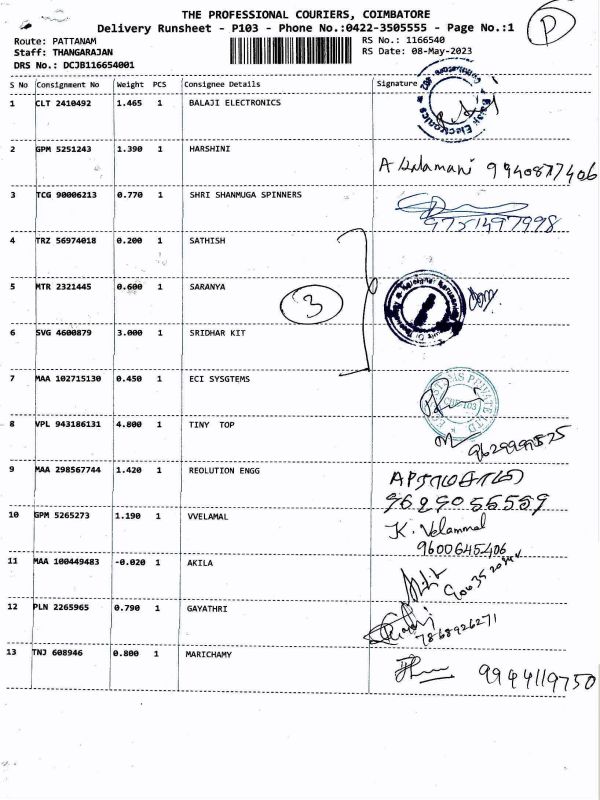 THE PROFESSIONAL COURIERS, COIMBATORE
Delivery Runsheet - P103 - Phone No.:0422-3505555 - Page No.:1
P
Route: PATTANAM
RS No.: 1166540
Staff: THANGARAJAN
RS Date: 08-May-2023
DRS No.: DCJB116654001
S No Consignment No Weight PCS Consignee Details Signature
1 CLT 2410492 1.465 1 BALAJI ELECTRONICS
2 GPM 5251243 1.390 1 HARSHINI
9940877406
3 TCG 90006213 0.770 1 SHRI SHANMUGA SPINNERS
9751497998
4 TRZ 56974018 0.200 1 SATHISH
5 MTR 2321445 0.600 1 SARANYA
3
6 SVG 4600879 3.000 1 SRIDHAR KIT
7 MAA 102715130 0.450 1 ECI SYSGTEMS
8 VPL 943186131 4.800 1 TINY TOP
9 MAA 298567744 1.420 1 REOLUTION ENGG
9629055559
10 GPM 5265273 1.190 1 VVELAMAL
K. Velammal
9600645406
11 MAA 100449483 -0.020 1 AKILA
12 PLN 2265965 0.790 1 GAYATHRI
7868926271
13 TNJ 608946 0.800 1 MARICHAMY
9944119750